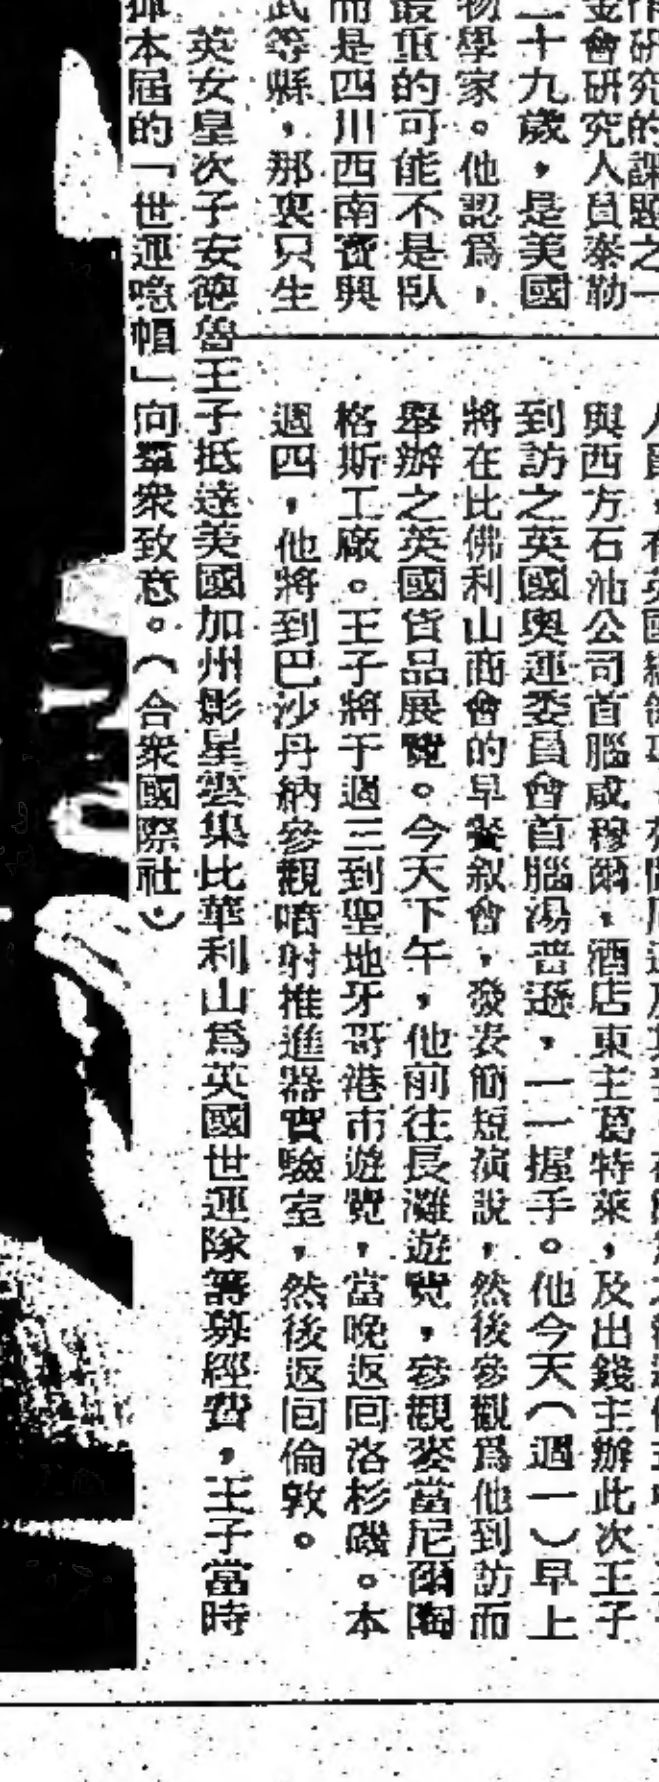 作研究的課題之一
金會研究人員泰勒
二十九歲，是美國
物學家。他認爲，
最重的可能不是臥
而是四川西南寶興
武等縣，那裏只生
與西方石油公司首腦威穆爾，酒店東主葛特萊，及出錢主辦此次王子
到訪之英國奧運委員會首腦湯普遜，一一握手。他今天（週一）早上
將在比佛利山商會的早餐叙會，發表簡短演說，然後參觀爲他到訪而
舉辦之英國貨品展覽。今天下午，他前往長灘遊覽，參觀麥當尼爾陶
格斯工廠。王子將于週三到聖地牙哥港市遊覽，當晚返回洛杉磯。本
週四，他將到巴沙丹納參觀噴射推進器實驗室，然後返回倫敦。
英女皇次子安德魯王子抵達美國加州影星雲集比華利山爲英國世運隊籌募經費，王子當時
本屆的「世運嘜帽」向羣衆致意。（合衆國際社）